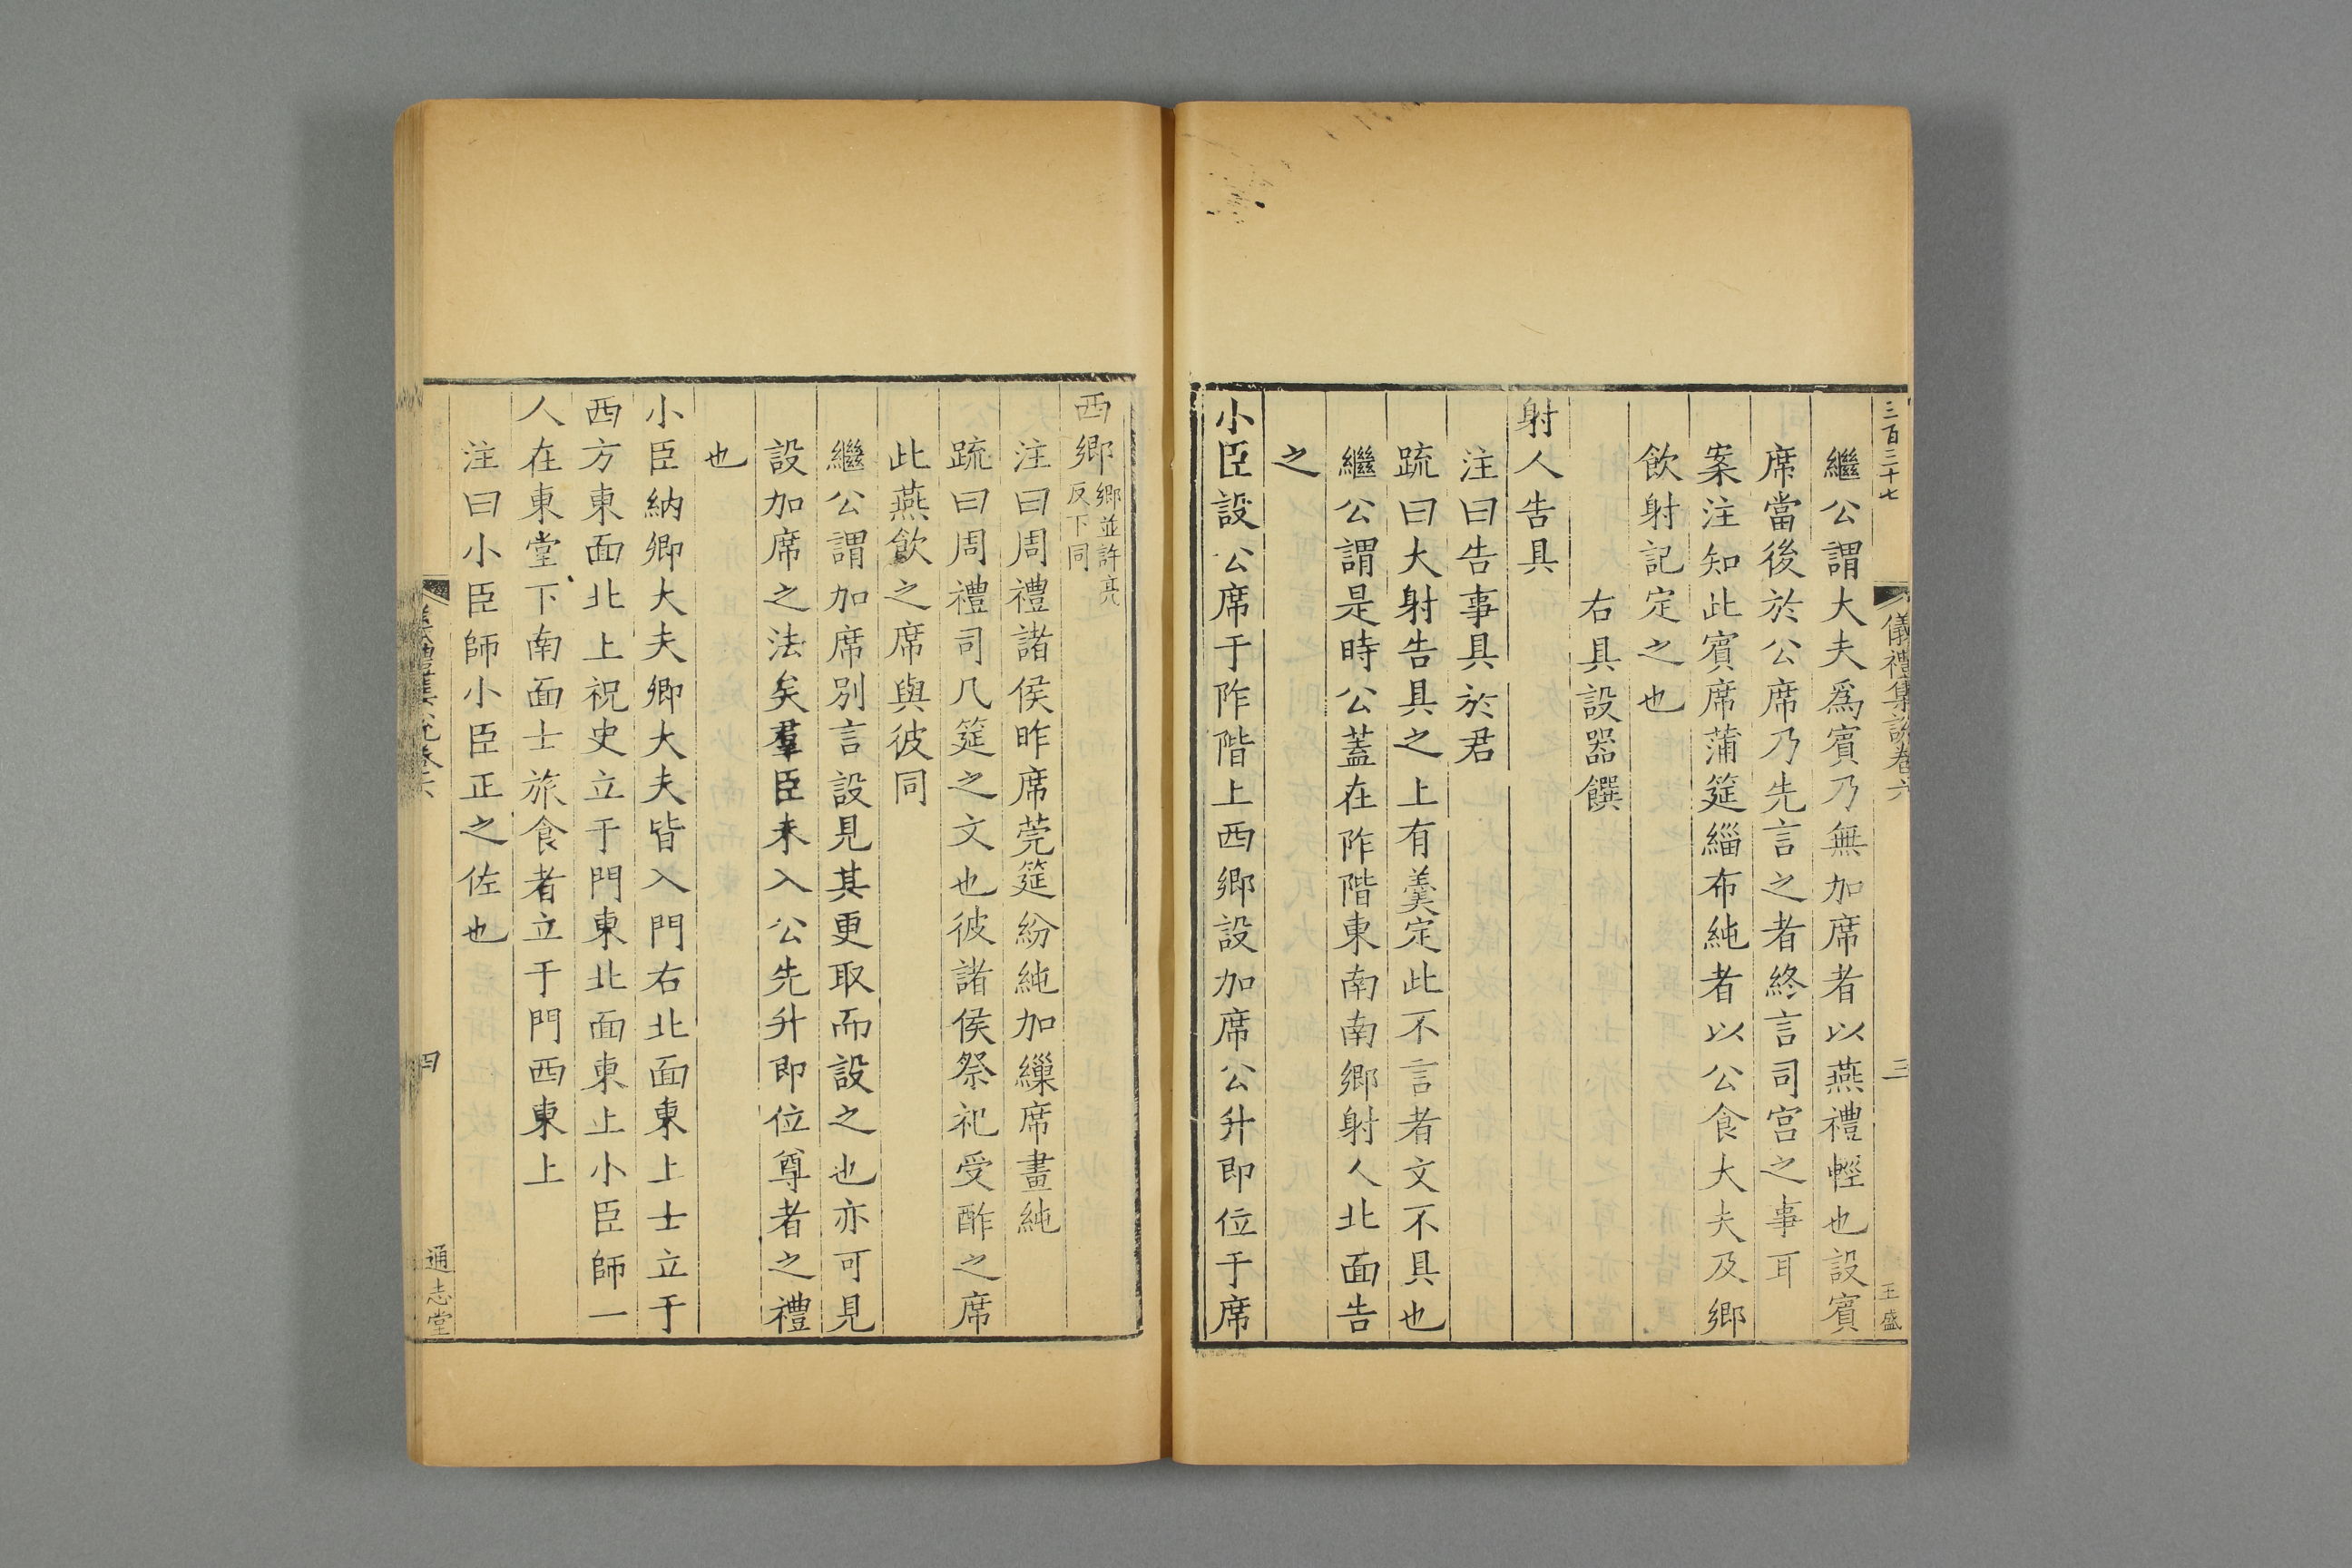 三百三十七
儀禮集說卷六
三
王盛
繼公謂大夫爲賓乃無加席者以燕禮輕也設賓
席當後於公席乃先言之者終言司宮之事耳
案注知此賓席蒲筵緇布純者以公食大夫及鄉
飲射記定之也
右具設器饌
射人告具
注曰告事具於君
疏曰大射告具之上有羹定此不言者文不具也
繼公謂是時公蓋在阼階東南南鄉射人北面告
之
小臣設公席于阼階上西鄉設加席公升即位于席
西鄉鄉並許亮
反下同
注曰周禮諸侯昨席莞筵紛純加繅席畫純
疏曰周禮司几筵之文也彼諸侯祭祀受酢之席
此燕飲之席與彼同
繼公謂加席別言設見其更取而設之也亦可見
設加席之法矣羣臣未入公先升即位尊者之禮
也
小臣納卿大夫卿大夫皆入門右北面東上士立于
西方東面北上祝史立于門東北面東上小臣師一
人在東堂下南面士旅食者立于門西東上
注曰小臣師小臣正之佐也
儀禮集說卷六
四
通志堂